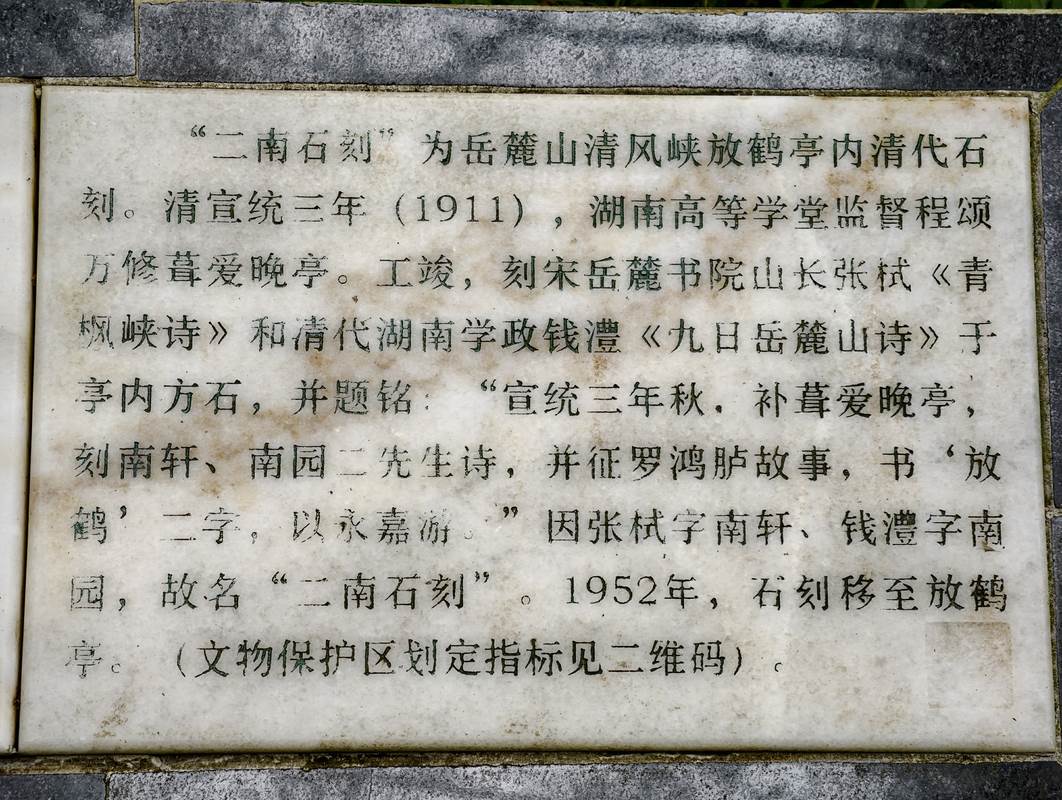 “二南石刻”为岳麓山清风峡放鹤亭内清代石
刻。清宣统三年（1911），湖南高等学堂监督程颂
万修葺爱晚亭。工竣，刻宋岳麓书院山长张栻《青
枫峡诗》和清代湖南学政钱澧《九日岳麓山诗》于
亭内方石，并题铭：“宣统三年秋，补葺爱晚亭，
刻南轩、南园二先生诗，并征罗鸿胪故事，书‘放
鹤’二字，以永嘉游。”因张栻字南轩、钱澧字南
园，故名“二南石刻”。1952年，石刻移至放鹤
亭。（文物保护区划定指标见二维码）。